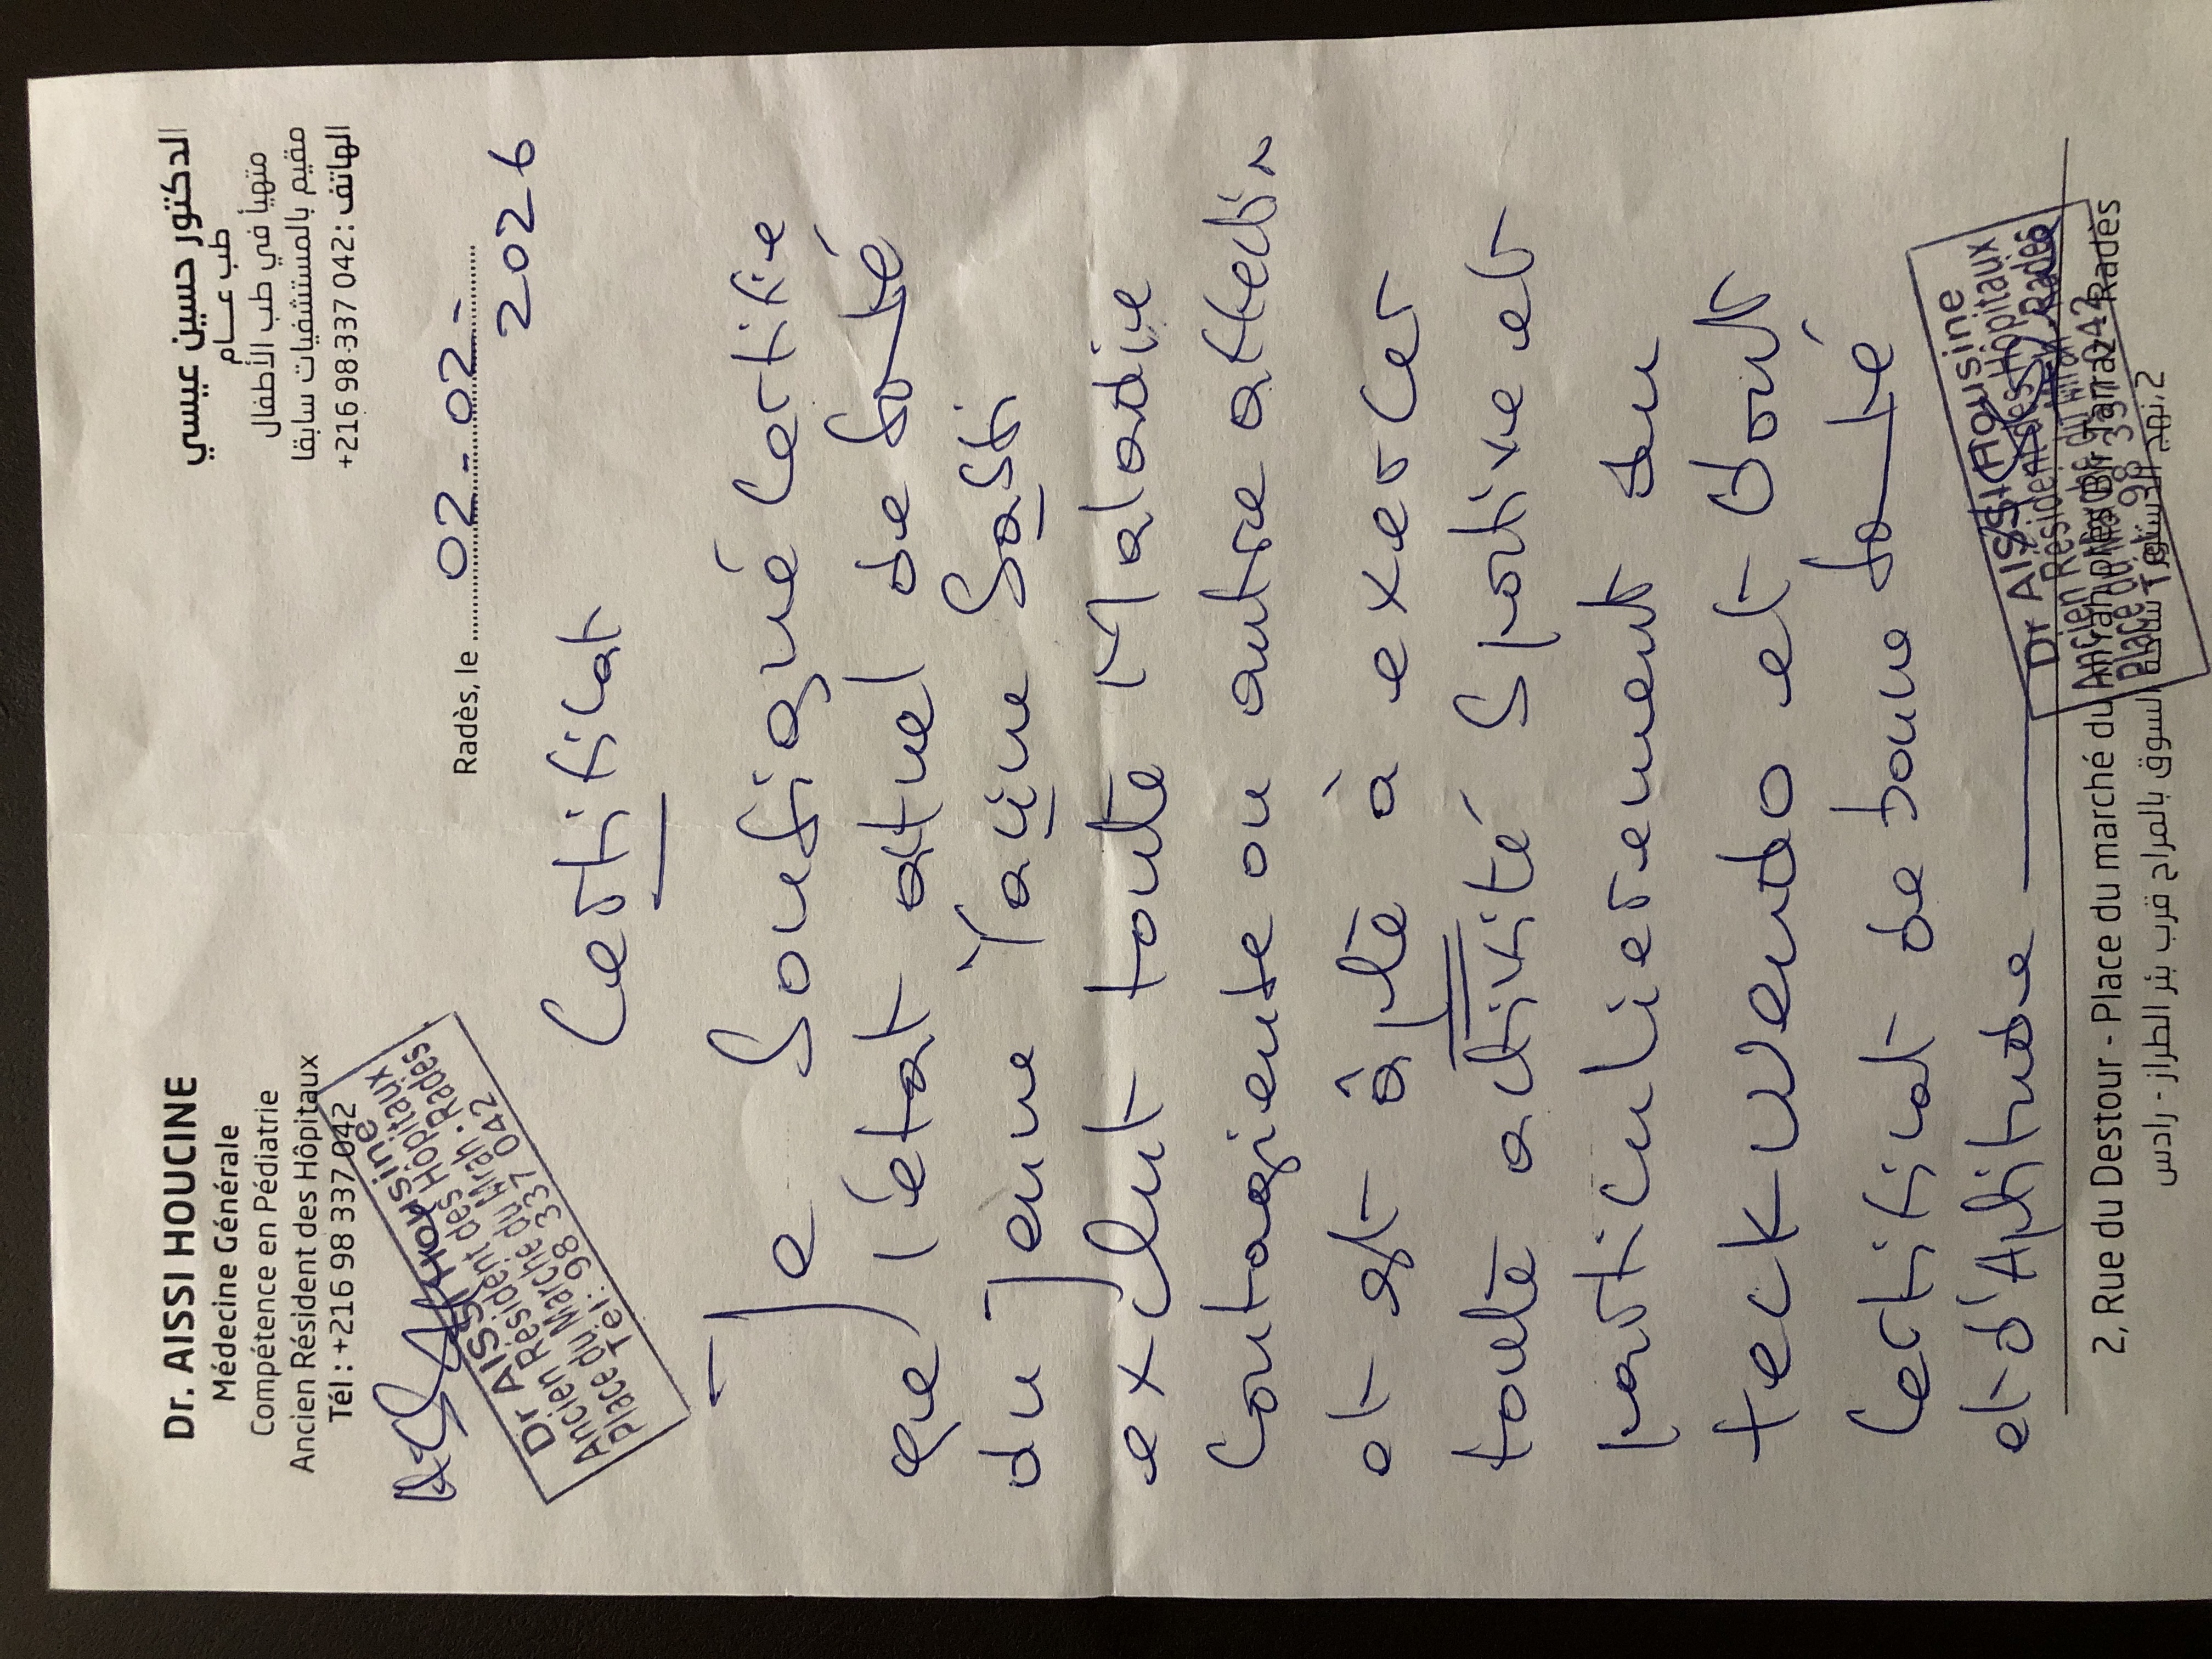 Dr. AISSI HOUCINE
Médecine Générale
Compétence en Pédiatrie
Ancien Résident des Hôpitaux
Tél : +216 98 337 042
الدكتور حسين عيسي
طب عــام
متهيأ في طب الأطفال
مقيم بالمستشفيات سابقا
الهاتف : 042 337 98 216+
Dr AISSI Housine
Ancien Résident des Hôpitaux
Place du Marche du Mrah - Rades
Tél : 98 337 042
Radès, le 02-02-
2026
Certificat
Je Soussigné Certifie
que l'état actuel de santé
du Jeune Yacine
exclut toute Maladie
Contagieuse ou autre affection
et est apte à exercer
toute activité Sportive et
particulièrement du
teckwendo et dont
Certificat de bonne santé
et d'Aptitude
Dr AISSI Housine
Ancien Résident des Hôpitaux
2, Rue du Destour - Place du marché du Mrah Radès
2، نهج الدستور ساحة السوق بالمراح قرب بئر الطراز - رادس